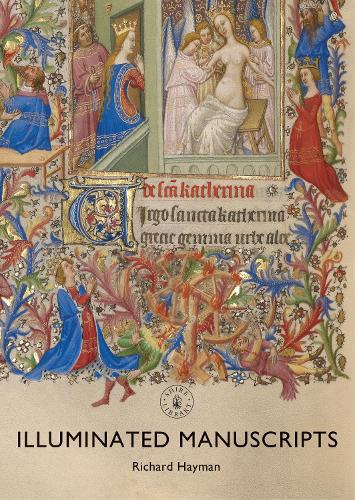 de scā katherina
Uirgo sancta katherina
grecie gemma urbe alex
SHIRE LIBRARY
ILLUMINATED MANUSCRIPTS
Richard Hayman